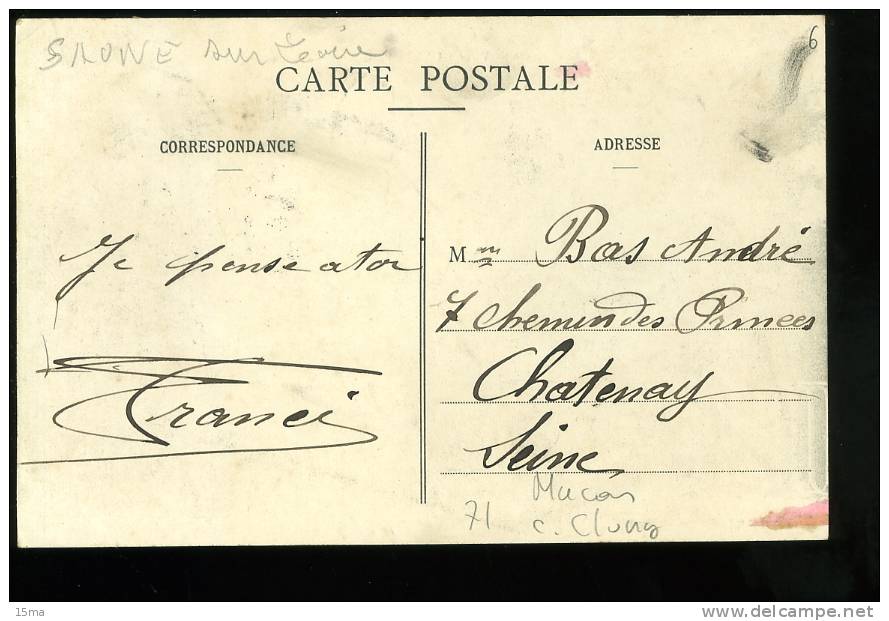 SAONE sur Loire
6
CARTE POSTALE
CORRESPONDANCE
Je pense a toi
Franci
ADRESSE
Mme Bas André
7 Chemin des Princes
Chatenay
Seine
Macon
71 c. Cluny
15ma
www.delcampe.net